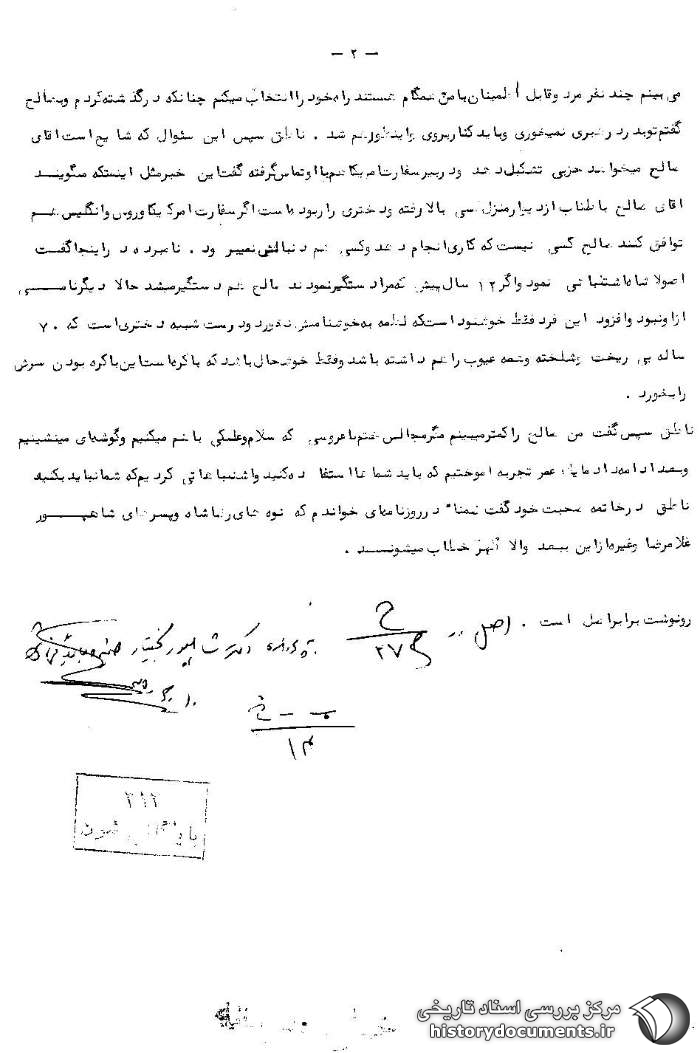 — ۲ —
می بینم چند نفر مرد وقابل اطمینان بامن همگام هستند راه خود را انتخاب میکنم چنانکه در گذشته کردم وبه صالح
گفتم توبدرد رهبری نمیخوری وباید کنار بروی واینطور هم شد . ناطق سپس این سئوال که شایع است اقای
صالح میخواهد حزبی تشکیل دهد ودرسفارت امریکا هم با او تماس گرفته گفت این خبر مثل اینستکه میگویند
اقای صالح با طناب از دیوار منزل کسی بالا رفته ودختری را ربوده است اگر سفارت امریکا وروس وانگلیس هم
توافق کنند صالح کسی نیست که کاری انجام دهد وکسی هم دنبالش نمیرود . نامبرده در اینجا گفت
اصولا شاه اشتباهی نمود واگر ۱۲ سال پیش که مرا دستگیر نمودند صالح هم دستگیر میشد حالا دیگر نامی
از او نبود وافزود این فرد فقط خوشنود است که لطمه به خوشنامیش نخورد ودرست شبیه دختری است که ۷۰
ساله بی ریخت وشلخته وهمه عیوب را هم داشته باشد وفقط خوشحال باشد که باکره است این باکره بودن سرش
را بخورد .
ناطق سپس گفت من صالح را کمتر میبینم مگر مجالس ختم یا عروسی که سلام وعلیکی با هم میکنیم وگوشه ای مینشینیم
وبعد ادامه داد ما یک عمر تجربه اموختیم که باید شماها استفاده کنید واشتباهاتی کردیم که شما نباید بکنید
ناطق در خاتمه صحبت خود گفت ضمنا" در روزنامه ای خواندم که نوه های رضا شاه وپسر های شاهپور
غلامرضا وغیره از این ببعد والا گهر خطاب میشوند .
رونوشت برابر اصل است . اصل در
ح
۲۷
پرونده دکتر شاپور بختیار
۱۴
۳۱۲
بایگانی شود
مرکز بررسی اسناد تاریخی
historydocuments.ir